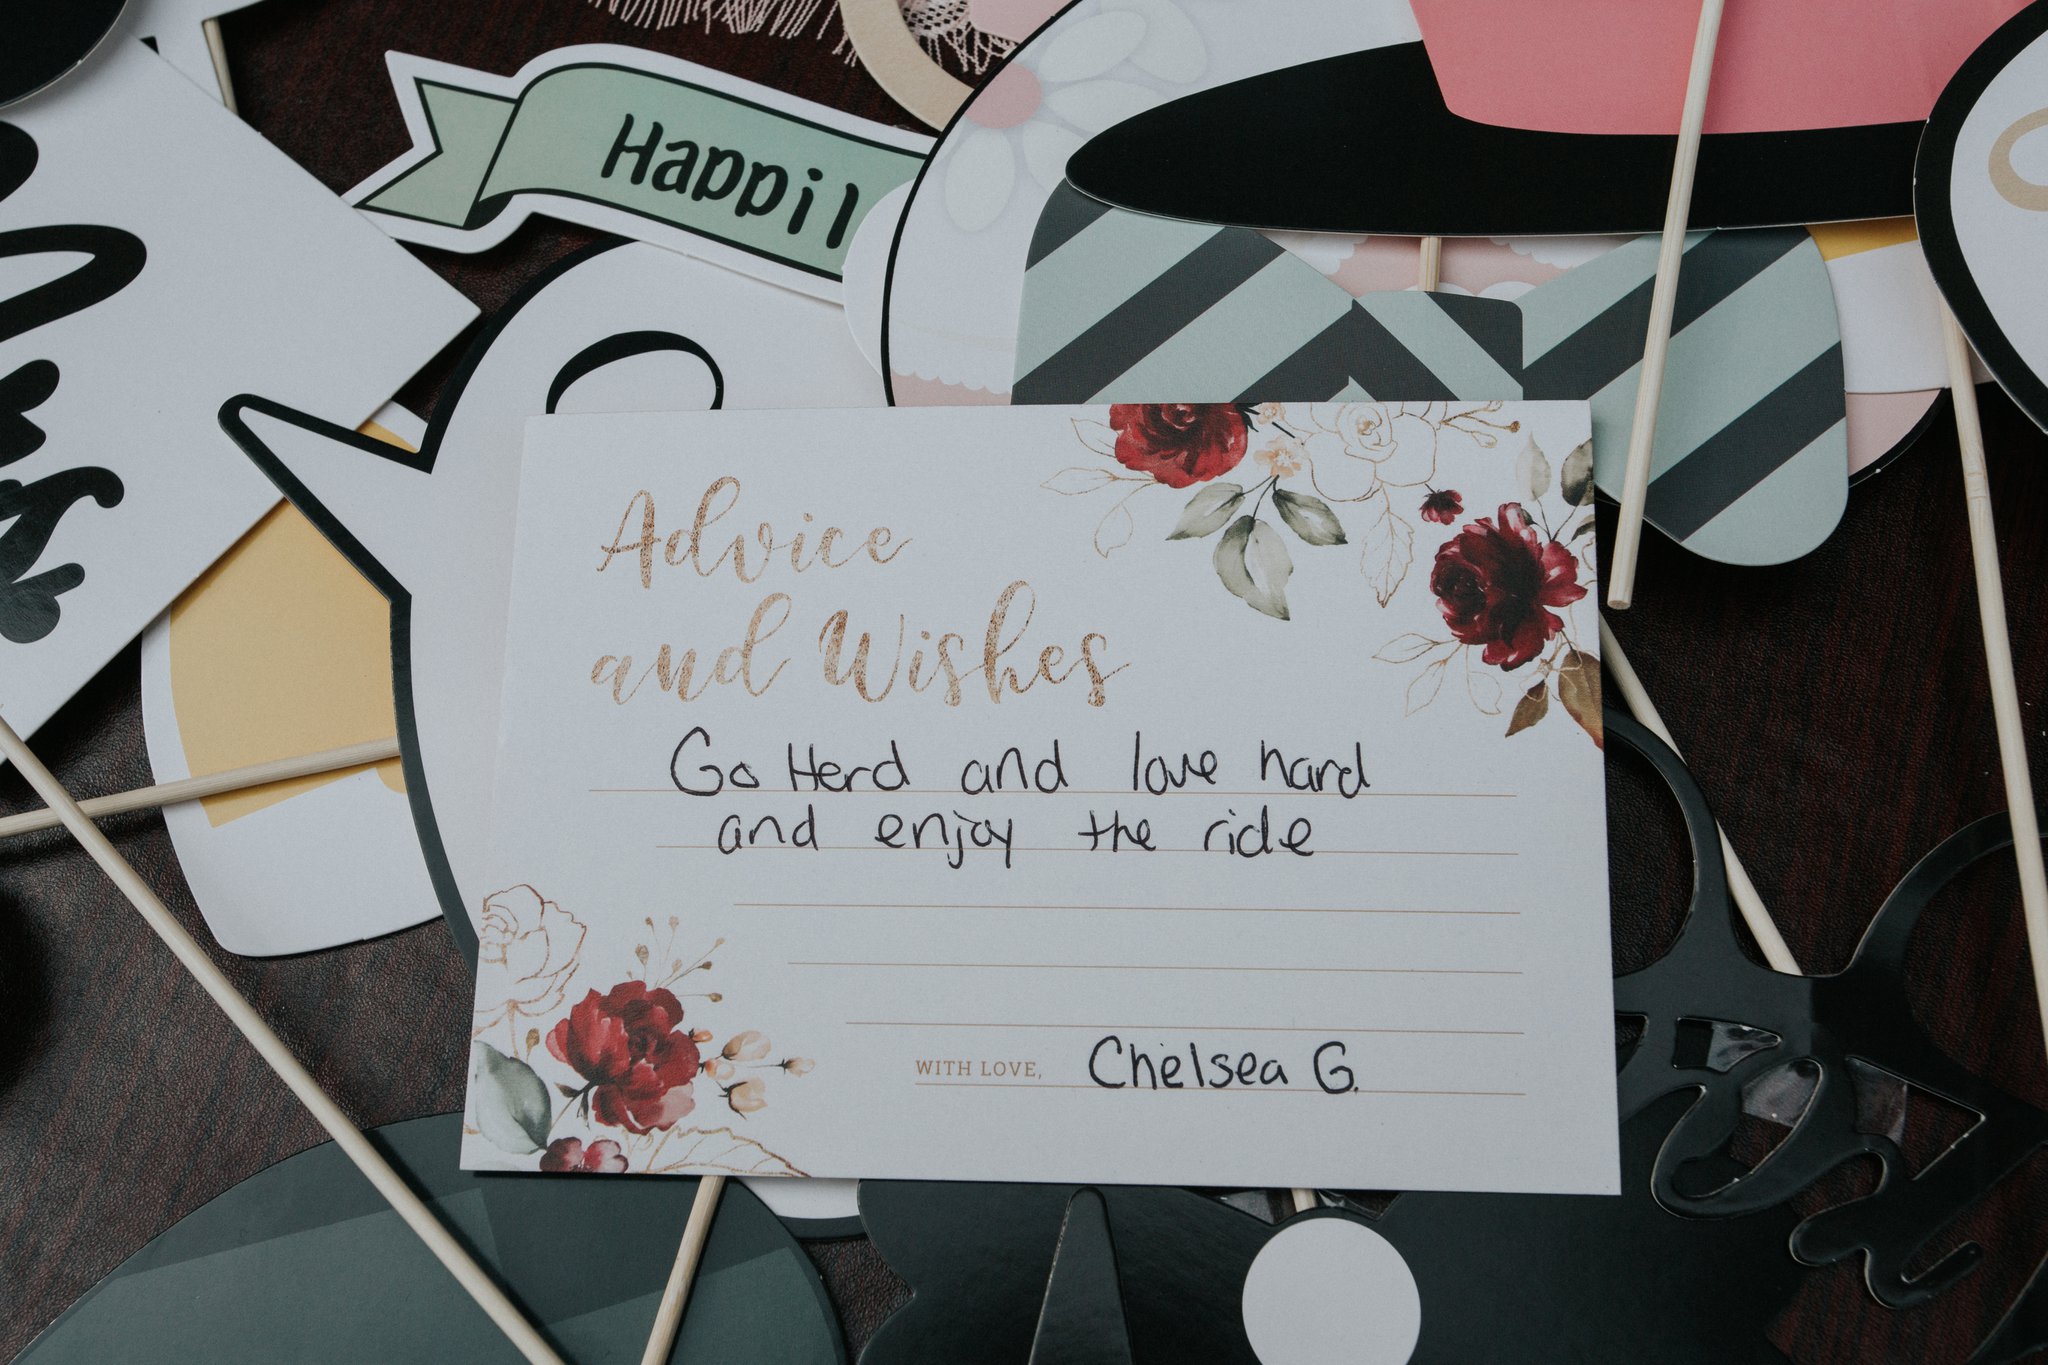 Happil
Advice
and Wishes
Go Herd and love hard
and enjoy the ride
WITH LOVE, Chelsea G.